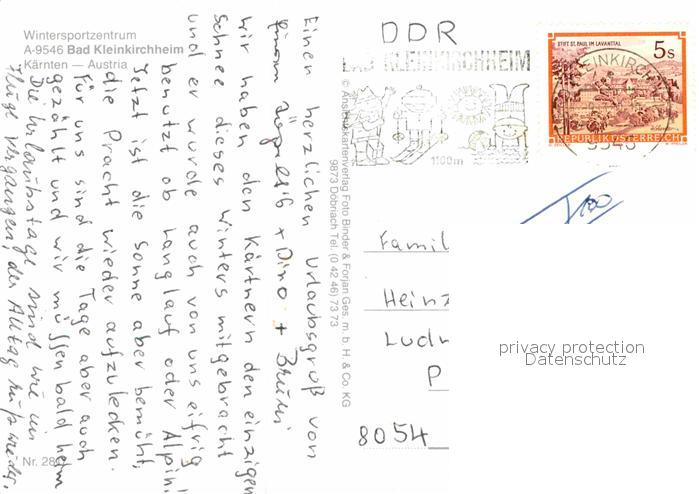 Wintersportzentrum
A-9546 Bad Kleinkirchheim
Kärnten — Austria
Einen herzlichen Urlaubsgruß von
+ Dino +
Wir haben den Kärtnern den einzigen
Schnee dieses Winters mitgebracht
und er wurde auch von uns eifrig
benutzt ob Langlauf oder Alpin!
Jetzt ist die Sonne aber bemüht,
die Pracht wieder aufzulecken.
Für uns sind die Tage aber auch
gezählt und wir müssen bald heim
Die Urlaubstage sind wie im
Fluge vergangen, der Alltag ruft wieder.
Nr. 28
© Ansichtskartenverlag Foto Binder & Forjan Ges. m. b. H. & Co. KG
9873 Döbriach Tel. (0 42 46) 73 73
DDR
BAD KLEINKIRCHHEIM
1100m
STIFT ST. PAUL IM LAVANTTAL
5s
REPUBLIK ÖSTERREICH
KLEINKIRCH
9546
Famil
Heinz
Ludw
P
8054
privacy protection
Datenschutz